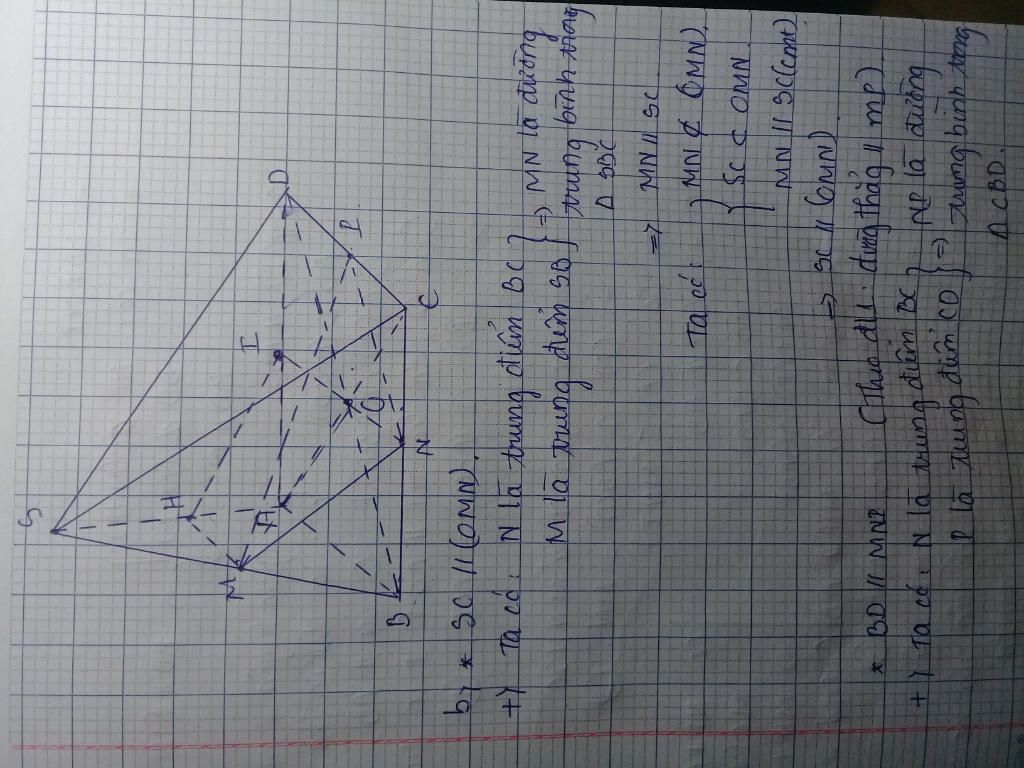 S
H
M
A
I
D
P
O
B
N
C
b, * SC // (OMN).
+) Ta có: N là trung điểm BC } => MN là đường
M là trung điểm SB } trung bình trong
Δ SBC
=> MN // SC
Ta có: } MN ⊄ (OMN).
} SC ⊂ OMN
MN // SC (cmt)
=> SC // (OMN)
* BD // MNP
+) Ta có: N là trung điểm BC } NP là đường
P là trung điểm CD } => trung bình trong
Δ CBD.